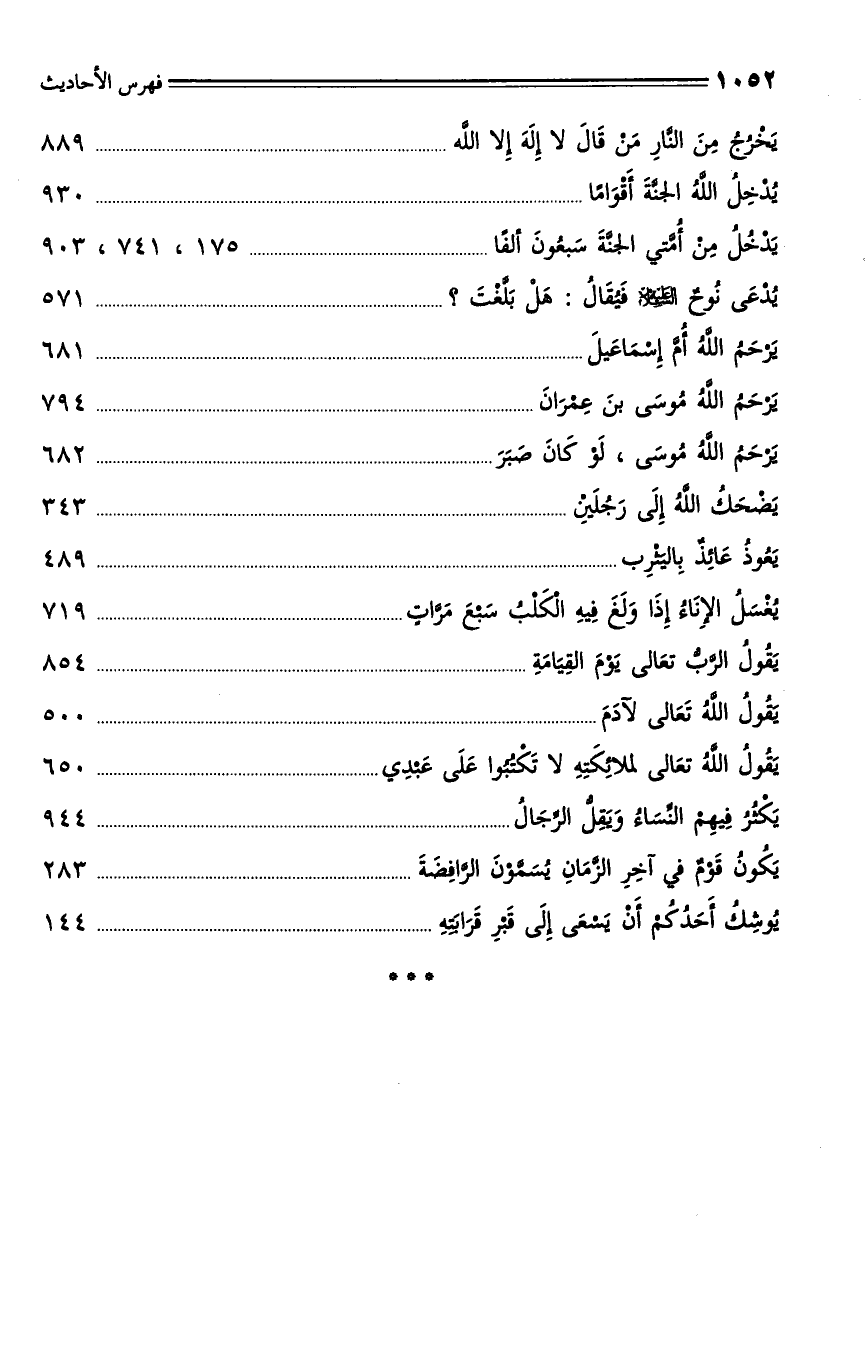 ١٠٥٢ فهرس الأحاديث
يَخْرُجُ مِنَ النَّارِ مَنْ قَالَ لا إِلَهَ إِلا اللَّه ٨٨٩
يُدْخِلُ اللَّهُ الجنَّةَ أَقْوَامًا ٩٣٠
يَدْخُلُ مِنْ أُمَّتي الجنَّةَ سَبعُونَ ألفًا ١٧٥ ، ٧٤١ ، ٩٠٣
يُدْعَى نُوحٌ العَلَيْهِ السَّلام فَيُقَالُ : هَلْ بَلَّغْتَ ؟ ٥٧١
يَرْحَمُ اللَّهُ أُمَّ إِسْمَاعَيلَ ٦٨١
يَرْحَمُ اللَّهُ مُوسَى بنَ عِمْرَانَ ٧٩٤
يَرْحَمُ اللَّهُ مُوسَى ، لَوْ كَانَ صَبَرَ ٦٨٢
يَضْحَكُ اللَّهُ إِلَى رَجُلَيْنِ ٣٤٣
يَعُوذُ عَائِذٌ بِاليَثْرِب ٤٨٩
يُغْسَلُ الإِنَاءُ إِذَا وَلَغَ فِيهِ الْكَلْبُ سَبْعَ مَرَّاتٍ ٧١٩
يَقُولُ الرَّبُّ تعَالى يَوْمَ القِيَامَةِ ٨٥٤
يَقُولُ اللَّهُ تَعَالى لآدَمَ ٥٠٠
يَقُولُ اللَّهُ تعَالى لملائِكَتِهِ لا تَكْتُبُوا عَلَى عَبْدِي ٦٥٠
يَكْثُرُ فِيهِمْ النِّسَاءُ وَيَقِلُّ الرِّجَالُ ٩٤٤
يَكُونُ قَوْمٌ في آخِرِ الزَّمَانِ يُسَمَّوْنَ الرَّافِضَةَ ٢٨٣
يُوشِكُ أَحَدُكُمْ أَنْ يَسْعَى إِلَى قَبْرِ قَرَابَتِهِ ١٤٤
* * *